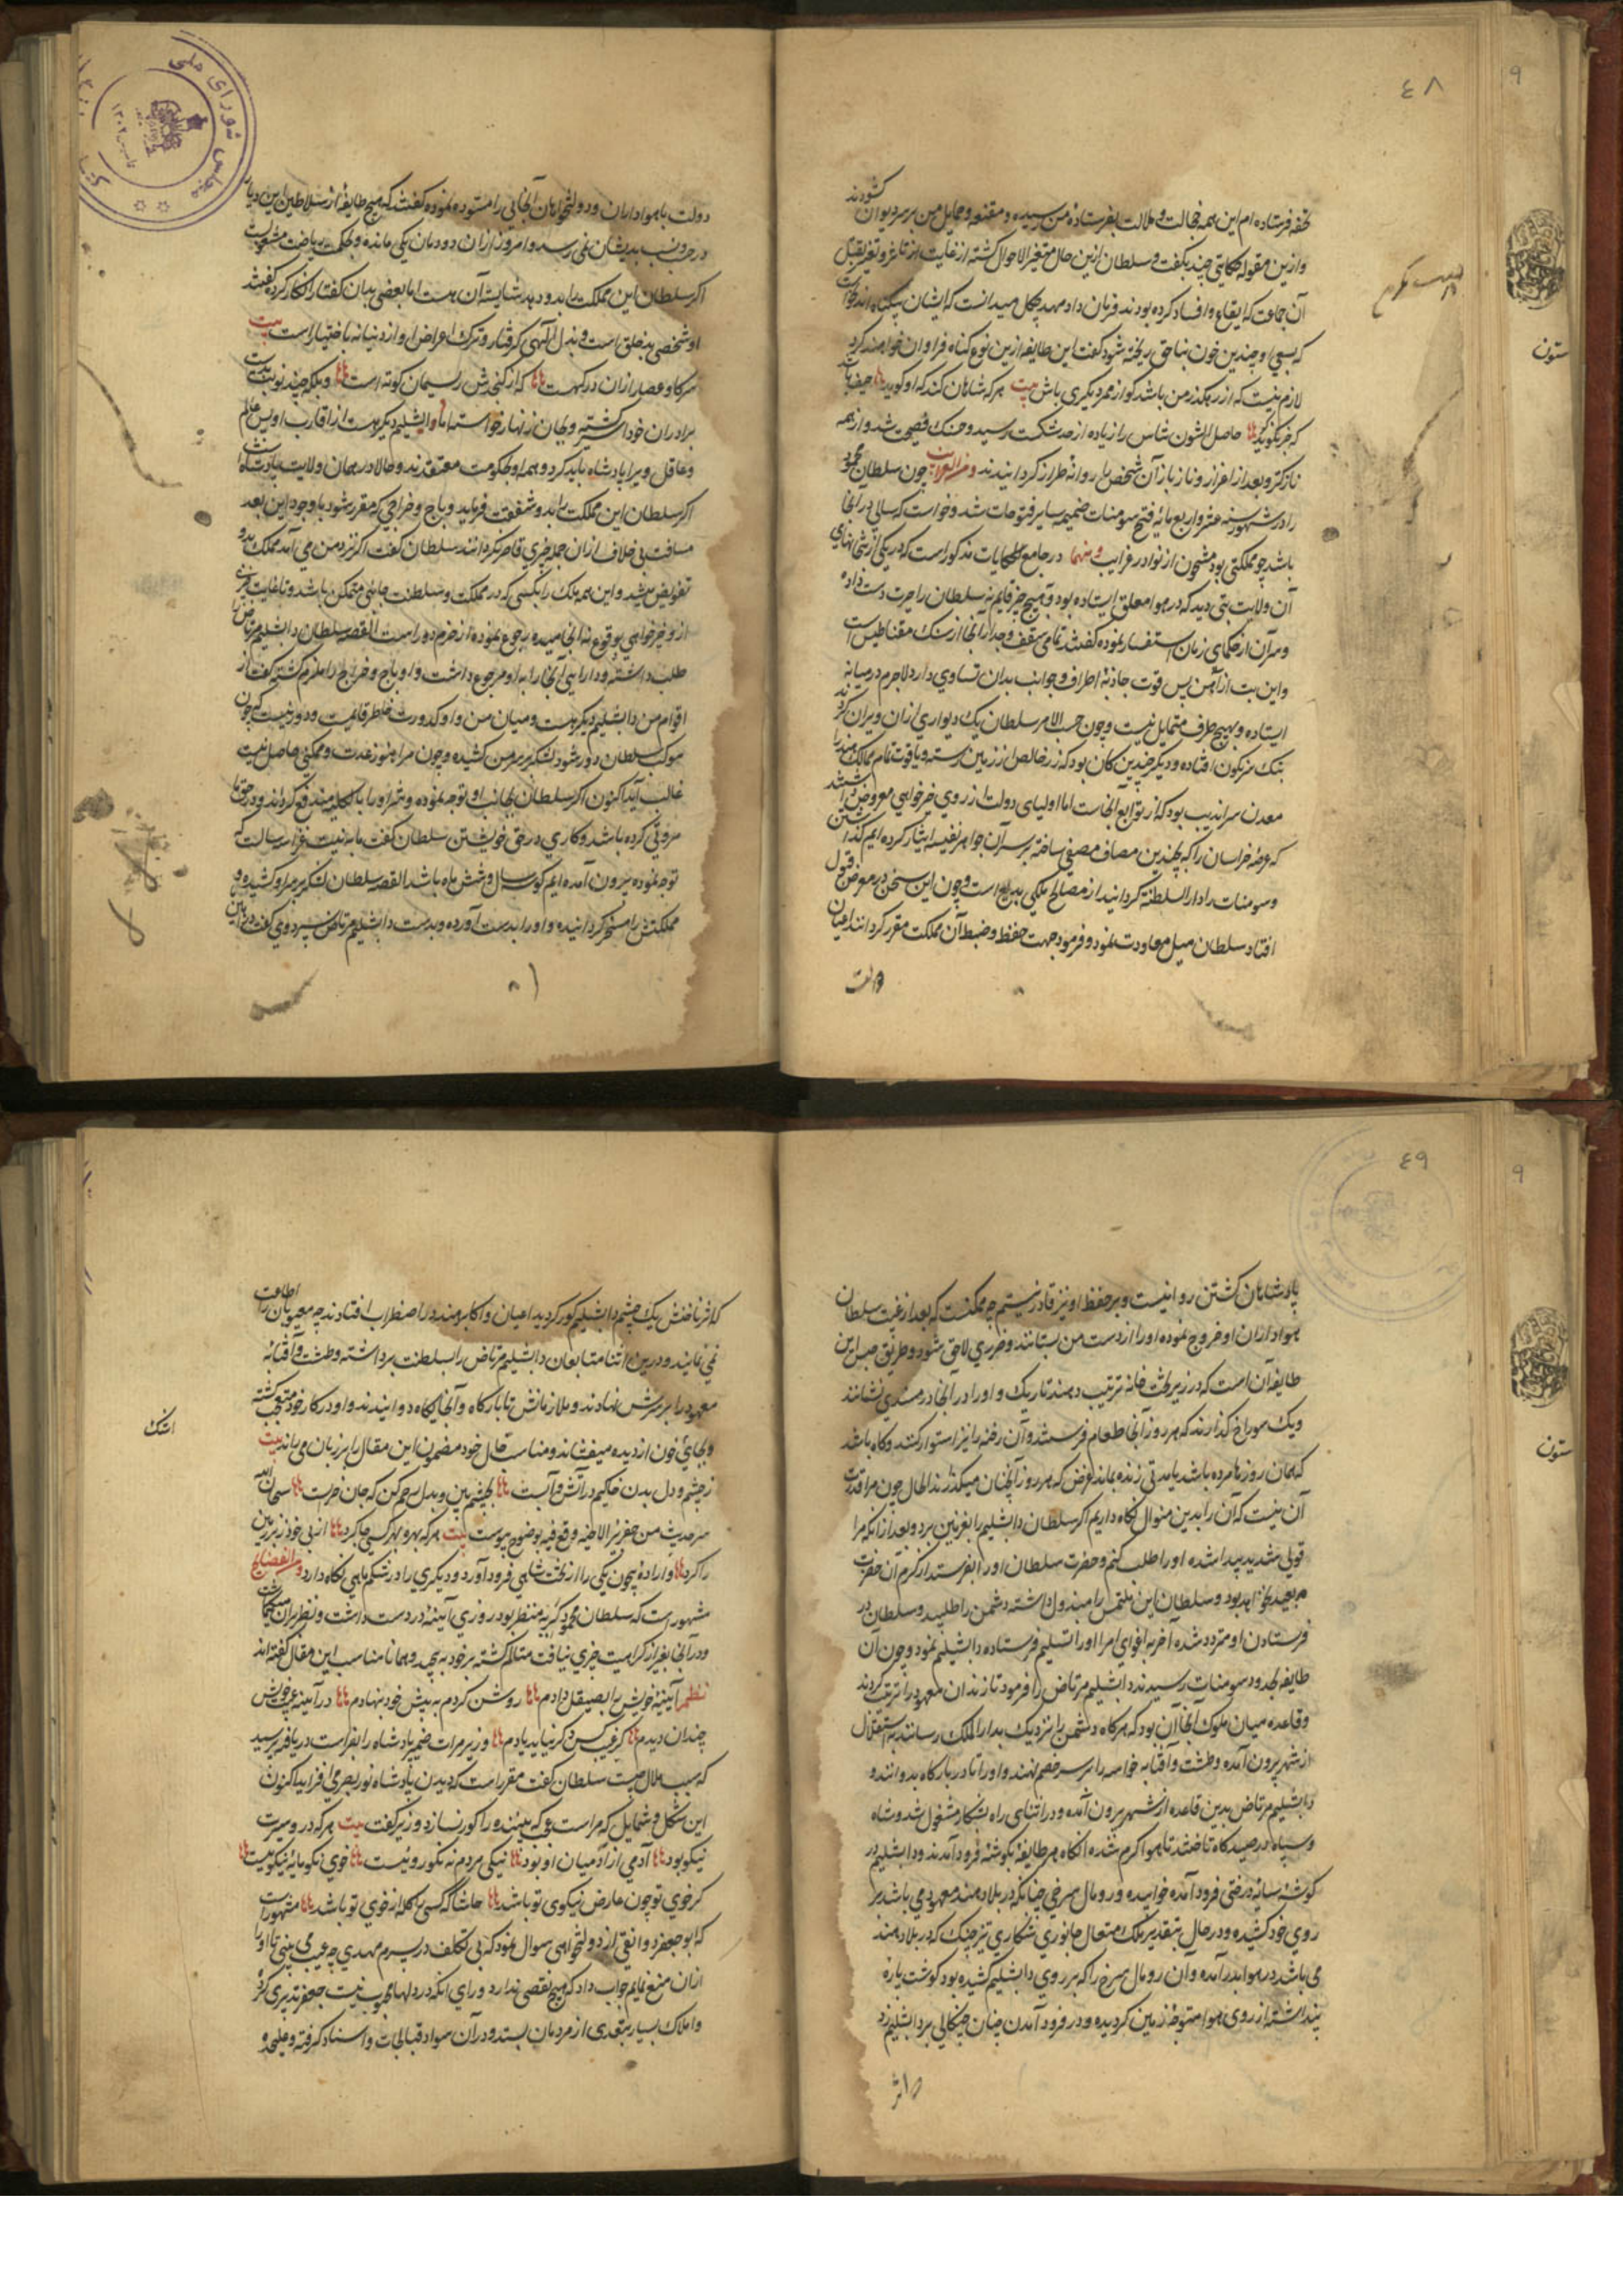 ٤٨
تحفه فرستاده ام این همه خجالت و ملالت بفرستاده من رسیده و مقنعه و حمایل من بر سر دیوان کشودند
وازین مقوله حکایتی چند بگفت و سلطان ازین حال متغیر الاحوال کشته از غایت تاثر و تغیر بقتل
آن جماعت که ایقاع و افساد کرده بودند فرمان داد مهد چکل میدانست که ایشان بیکناه اند
که بسعی او چندین خون بناحق ریخته شود کفت این طایفه ازین نوع کناه فراوان خواهند کرد
لازم نیست که از رهکذر من باشد کو از ممر دیکری باش بیت هر که شاهان کند که او کوید حیف باشد
که جز نکو کوید حاصل التون شاس را زیاده از حد شکست رسید و فضیحت شد و از همه
نازکتر و بعد از اعزاز و ناز باز آن شخص را روانهٔ طراز کردانیدند و من الغرایب چون سلطان محمود
را در شهور سنه عشر و اربع مائه فتح سومنات ضمیمه سایر فتوحات شد و خواست که سالی در آنجا
باشد چو مملکتی بود مشحون از نوادر غرایب و منها در جامع الحکایات مذکور است که در یکی از بتخانهای
آن ولایت بتی دید که در هوا معلق ایستاده بود و بهیچ چیز قایم نه سلطان را حیرت دست داده
و سر آن از حکمای زمان استفسار نموده کفتند تمامی سقف و جدار آنجا از سنک مقناطیس است
و این بت از آهن پس قوت جاذبهٔ اطراف و جوانب بدان تساوی دارد لاجرم در میانه
ایستاده و بهیچ طرف متمایل نیست و چون حسب الامر سلطان یک دیواری از ان ویران کردند
بتک سرنکون افتاد و دیکر چندین کان بود که زر خالص از زمین رسته و یاقوت تمام ممالک هند را
معدن سراندیب بود که از توابع آنجاست اما اولیای دولت از روی خیر خواهی معروض داشتند
که عرصهٔ خراسان را که بچندین مصاف مصفی ساخته بر سر آن جواهر نفیسه ایثار کرده ایم کذاشتن
و سومنات را دار السلطنة کردانیدن از مصالح ملکی بدیع است و چون این سخن در معرض قبول
افتاد سلطان میل معاودت نمود و فرمود جهت حفظ و ضبط آن مملکت مقرر کردانند اعیان
دولت
ستون
مجلس شورای ملی
۱۳۰۲
دولت با هواداران و دولتخواهان آنجائی را مشوده نموده کفتند که هیچ طایفهٔ از سلاطین این دیار
در حسب و نسب بدیشان نمی رسد و امروز از ان دودمان یکی مانده و بحکمت و ریاضت مشغولست
اکر سلطان این مملکت را بدو دهد شایستهٔ آن هست اما بعضی بدان کفتار انکار کرده کفتند
او شخصی بد خلق است و ببدل الهی کرفتار و ترک اعراض او از دنیا نه باختیار است بیت
سرکا و عصار از ان در کهست که از کنجدش ریسمان کوته است و بلکه چند نوبت بدست
برادران خود اسیر کشته و بجان زنهار خواسته اما دابشلیم دیکر هست از اقارب او بس عالم
و عاقل ویرا پادشاه باید کرد و همه او بحکومت معتقدند و حالا در همان ولایت پادشاه است
اکر سلطان این مملکت را بدو شفقت فرماید و باج و خراجی که مقرر شود با وجود این بعد
مسافت بی خلاف از ان جمله چیزی قاصر نکرداند سلطان کفت اکر نزد من می آمد مملکت بدو
تفویض میشد و این همه ملک را بکسی که در مملکت و سلطنت جائی متمکن باشد و تا غایت
ازو خیر خواهی بوقوع نه انجامیده رجوع نموده از حزم دور است القصه سلطان دابشلیم مرتاض را
طلب داشته و دارایی آنجا را به او مرجوع داشت و او باج و خراج را ملزم کشته کفت از
اقوام من دابشلیم دیکر هست و میان من و او کدورت خاطر قائمست و دور نیست که چون
موکب سلطان دور شود لشکر بر سر من کشیده و چون مرا هنوز عدت و مکنتی حاصل نیست
غالب آید اکنون اکر سلطان بجانب او توجه نموده و شر او را بالکلیه مندفع کرداند در حق ما
مروتی کرده باشد و کاری در حق خویشتن سلطان کفت ما به نیت غزا رسالت که
توجه نموده بیرون آمده ایم کو سه سال و شش ماه باشد القصه سلطان لشکر بر سر او کشیده و
مملکتش را مسخر کردانیده و او را بدست آورده و بدست دابشلیم مرتاض سپرد وی کفت در این
٤٩
پادشاهان کشتن روا نیست و بر حفظ او نیز قادر نیستم چه ممکنست که بعد از غیبت سلطان
هواداران او خروج نموده او را از دست من بستانند و ضرری لاحق شود و طریق حبس این
طایفه آن است که در زیر تخت خانه ترتیب دهند تاریک و او را در آنجا در مسندی نشانند
و یک سوراخ کذارند که هر روز آنجا طعام فرستند و آن رخنه را نیز استوار کنند و کاه باشد
که همان روزها مرده باشد یا مدتی زنده بماند غرض که هر روز آنچنان میکذرند الحال چون مرا قدرت
آن نیست که آن را بدین منوال نکاه داریم اکر سلطان دابشلیم را بغزنین برد و بعد از انکه مرا
قوتی شدید پیدا شده او را طلب کنم و حضرت سلطان او را بفرستد از کرم آن حضرت
بعید نخواهد بود و سلطان این ملتمس را مبذول داشته دشمن را طلبید و سلطان در
فرستادن او متردد شده آخر به اغوای امرا او را تسلیم فرستاده دابشلیم نمود و چون آن
طایفه بحدود سومنات رسیدند دابشلیم مرتاض را فرمود تا زندان معهود را ترتیب کردند
و قاعده میان ملوک آنجا آن بود که هر کاه دشمن را نزدیک بدار الملک رسانند به استقلال
از شهر بیرون آمده و طشت و آفتابه خواسه را بر سر خصم نهند و او را تا در بارکاه بدوانند و
دابشلیم مرتاض بدین قاعده از شهر بیرون آمده و در اثنای راه بشکار مشغول شد و شاه
و سپاه در صیدکاه تاختند تا هوا کرم شده آنکاه هر طایفه بکوشهٔ فرود آمدند و دابشلیم در
کوشه سایه درختی فرود آمده خوابیده و رومال سرخی چنانکه در بلاد هند معهود می باشد بر
روی خود کشیده و در حال بتقدیر ملک متعال جانوری شکاری تیز چنک که در بلاد هند
می باشد در هوا در آمده و آن رومال سرخ را که بر روی دابشلیم کشیده بود کوشت پاره
پنداشته از روی هوا متوجهٔ زمین کردیده و در فرود آمدن چنان چنکالی بر دابشلیم زد
که اثر
ستون
که اثر ناخنش یک چشم دابشلیم کور کردید اعیان و اکابر هند در اضطراب افتادند چه معیوبان را اطاعت
نمی نمایند و درین اثنا متابعان دابشلیم مرتاض را بسلطنت برداشته و طشت و آفتابه
معهود را بر سرش نهادند و ملازمانش تا بارکاه و آنجایکاه دوانیدند و او در کار خود متعجب کشته
و بجای خون از دیده میفشاند و مناسب حال خود مضمون این مقال را بر زبان می راند بیت
ز چشم و دل بدن خاکیم در آتش و آبست بچشم بین و بدل رحم کن که جان خرابست سبحان الله
سر حدیث من حفر بئرا لاخیه وقع فیه بوضوح پیوست بیت هر که بهر کسی چا کرد از پی خود زیر زمین
را کرد و ارادهٔ بیچون یکی را از تخت شاهی فرود آورد و دیکری را در شکم ماهی نکاه دارد و من الفضایح
مشهور است که سلطان محمود کریه منظر بود روزی آینهٔ در دست داشت و نظر بران میکماشت
و در آنجا بغیر از کراهیت چیزی نیافت متالم کشته بر خود بپیچید و همانا مناسب این مقال کفته اند
نظم آیینهٔ خویش را بصیقل دادم روشن کردم به پیش خود بنهادم در آینه عیب خویش
چندان دیدم کز عیب کس دکر نیاید یادم وزیر مرات ضمیر پادشاه را بفراست دریافته پرسید
که سبب ملال چیست سلطان کفت مقرر است که دیدن پادشاه نور بصر می افزاید اکنون
این شکل و شمایل که مراست عجب که بیننده را کور نسازد وزیر کفت بیت هر که در و سیرت
نیکو بود آدمی از آدمیان او بود نیکی مردم نه نکو روئیست خوی نکو مایهٔ نیکوییست
کر خوی تو چون عارض نیکوی تو باشد حاشا که کسی را کله از خوی تو باشد مشهور است
که ابو جعفر دوانقی از دولتخواهی سوال نمود که بی تکلف در پسرم مهدی چه عیب می بینی تا او را
از ان منع نمایم جواب داد که هیچ نقصی ندارد ورای انکه در دلها محبوب نیست جعفر تدبیری کرد
و املاک بسیار بتعدی از مردمان بستد و در آن سواد قبالجات و اسناد کرفته و علیحده
اشک